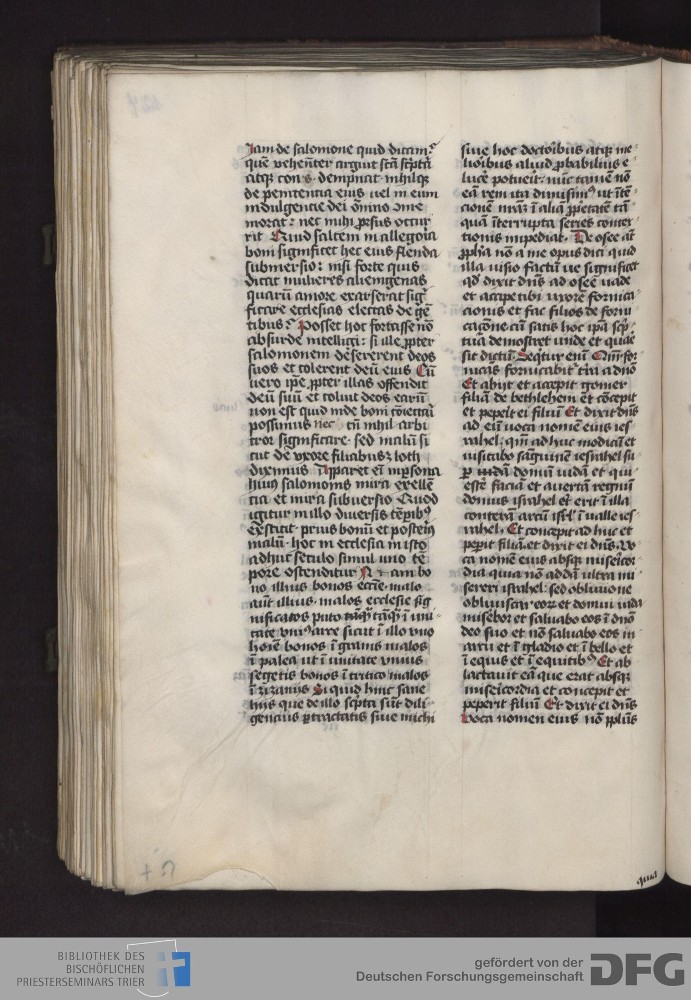 Jam de salomone quid dicam?
quē vehen̄ter arguit sc̄tā sc̄ptā
atq̄ con dempnat nihilq̄
de penitentia eius uel in eum
indulgencie dei om̄ino ōme
morat᷑ nec mihi p̄rsus occur
rit Quid saltem in allegoria
boni significet hec eius flenda
submersio: nisi forte quis
dicat mulieres alienigenas
quarū amore exarserat siḡ
ficare ecclesias electas de gē
tibus? Posset hoc fortasse nō
absurde intelligi: si ille p̄pter
salomonem desererent deos
suos et colerent deū eius Cū
uero ip̄e p̄pter illas offendit
deū suū et coluit deos earū
non est quid inde boni ꝯiectari
possimus nec cū nihil arbi
tror significare sed malū si
cut de vxore filiabusq̄ loth
diximus Apparet eī in p̄sona
huiꝰ salomonis mira excellē
cia et mira subuersio Quod
igitur in illo diuersis tēp̄ibꝰ
exstitit prius bonū et posteriꝰ
malū hoc in ecclesia in isto
adhuc seculo simul uno tē
pore ostenditur Nā cam bo
no illius bonos eccīe malo
aūt illius malos ecclesie sig
nificatos puto tāq̄ ī uni
tate vniꝰ aree sicut ī illo vno
hoīē bonos ī granis malos
ī palea ut ī unitate vnius
segetis bonos ī tritico malos
ī zizanijs Si quid hinc sane
hijs que de illo sc̄pta sūt dili
gencius p̄tractatis siue michi
siue hoc doctoribus atq̄ me
lioribus aliud p̄babilius e
lucē potuerit nūc tamē nō
eā rem ita dimisimꝰ ut ītē
cionē nr̄az ī alia p̄p̄etatē tā
quā īterrupta series contex
tionis inpediat De osee āt
p̄ph̄a nō a me opus dici quid
illa visio factū ue significat
qd̄ dixit dn̄s ad osee uade
et accipe tibi vxorē fornica
cionis et fac filios de forni
cacōne cū satis hoc ip̄a sc̄p
tura demostret unde et quare
sit dictū Seq̄tur enī Qm̄ for
nicās fornicabit᷑ t̄ra a dn̄o
Et abijt et accepit gomer
filiā de bethlehem et cōcepit
et pep̄it ei filiū Et dixit dn̄s
ad eū uoca nomē eius ies
rahel: qm̄ adhuc modicū et
visitabo sāguinē iesrahel su
ꝑ domū iudā et qui
escē faciā et auertā regnū
domus israhel et erit ī illa
conterā arcū isr̄l ī ualle ies
rahel Et concepit adhuc et
pep̄it filiā et dixit ei dn̄s Vo
ca nomē eius absq̄ misēicor
dia quia nō addā ultra mi
sereri israhel: sed obliuione
obliuiscar eorꝝ et domui iuda
misēbor et saluabo eos ī dn̄o
deo suo et nō saluabo eos in
arcu et ī gladio et ī bello et
ī equis et ī equitibꝰ Et ab
lactauit eā que erat absq̄
misēicordia et concepit et
peperit filiū Et dixit ei dn̄s
Voca nomen eius nō pp̄lus
quia
BIBLIOTHEK DES
BISCHÖFLICHEN
PRIESTERSEMINARS TRIER
gefördert von der
Deutschen Forschungsgemeinschaft
DFG